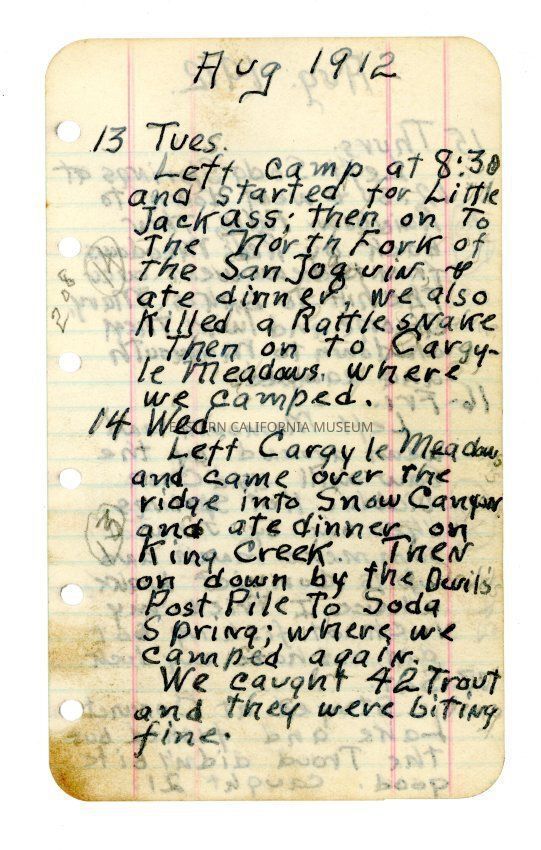 Aug 1912
13 Tues.
Left camp at 8:30
and started for Little
Jackass; then on To
The North Fork of
The San Joquin &
ate dinner, we also
Killed a Rattle snake
Then on to Cargy-
le Meadows, where
we camped.
14 Wed
EASTERN CALIFORNIA MUSEUM
Left Cargyle Meadows
and came over the
ridge into Snow Canyon
and ate dinner on
King Creek. Then
on down by the Devil's
Post Pile To Soda
Spring; where we
camped again.
We caught 42 Trout
and they were biting
fine.
208
13